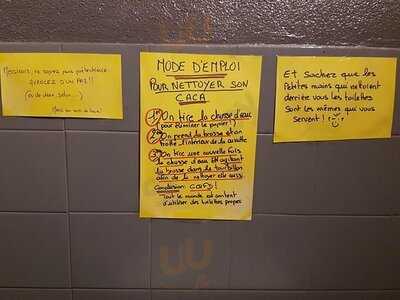 Messieurs, ne soyez pas prétentieux
AVANCEZ D'UN PAS !!
(ou de deux, selon...)
MODE D'EMPLOI
POUR NETTOYER SON
CACA
1) On tire la chasse d'eau
(pour éliminer le papier !)
2) On prend la brosse et on
frotte l'intérieur de la cuvette
3) On tire une nouvelle fois
la chasse d'eau EN agitant
la brosse dans le tourbillon
afin de la nettoyer elle aussi
Conclusion:
Tout le monde est content
d'utiliser des toilettes propres
Et sachez que les
Petites mains qui nettoient
derrière vous les toilettes
sont les mêmes qui vous
servent !